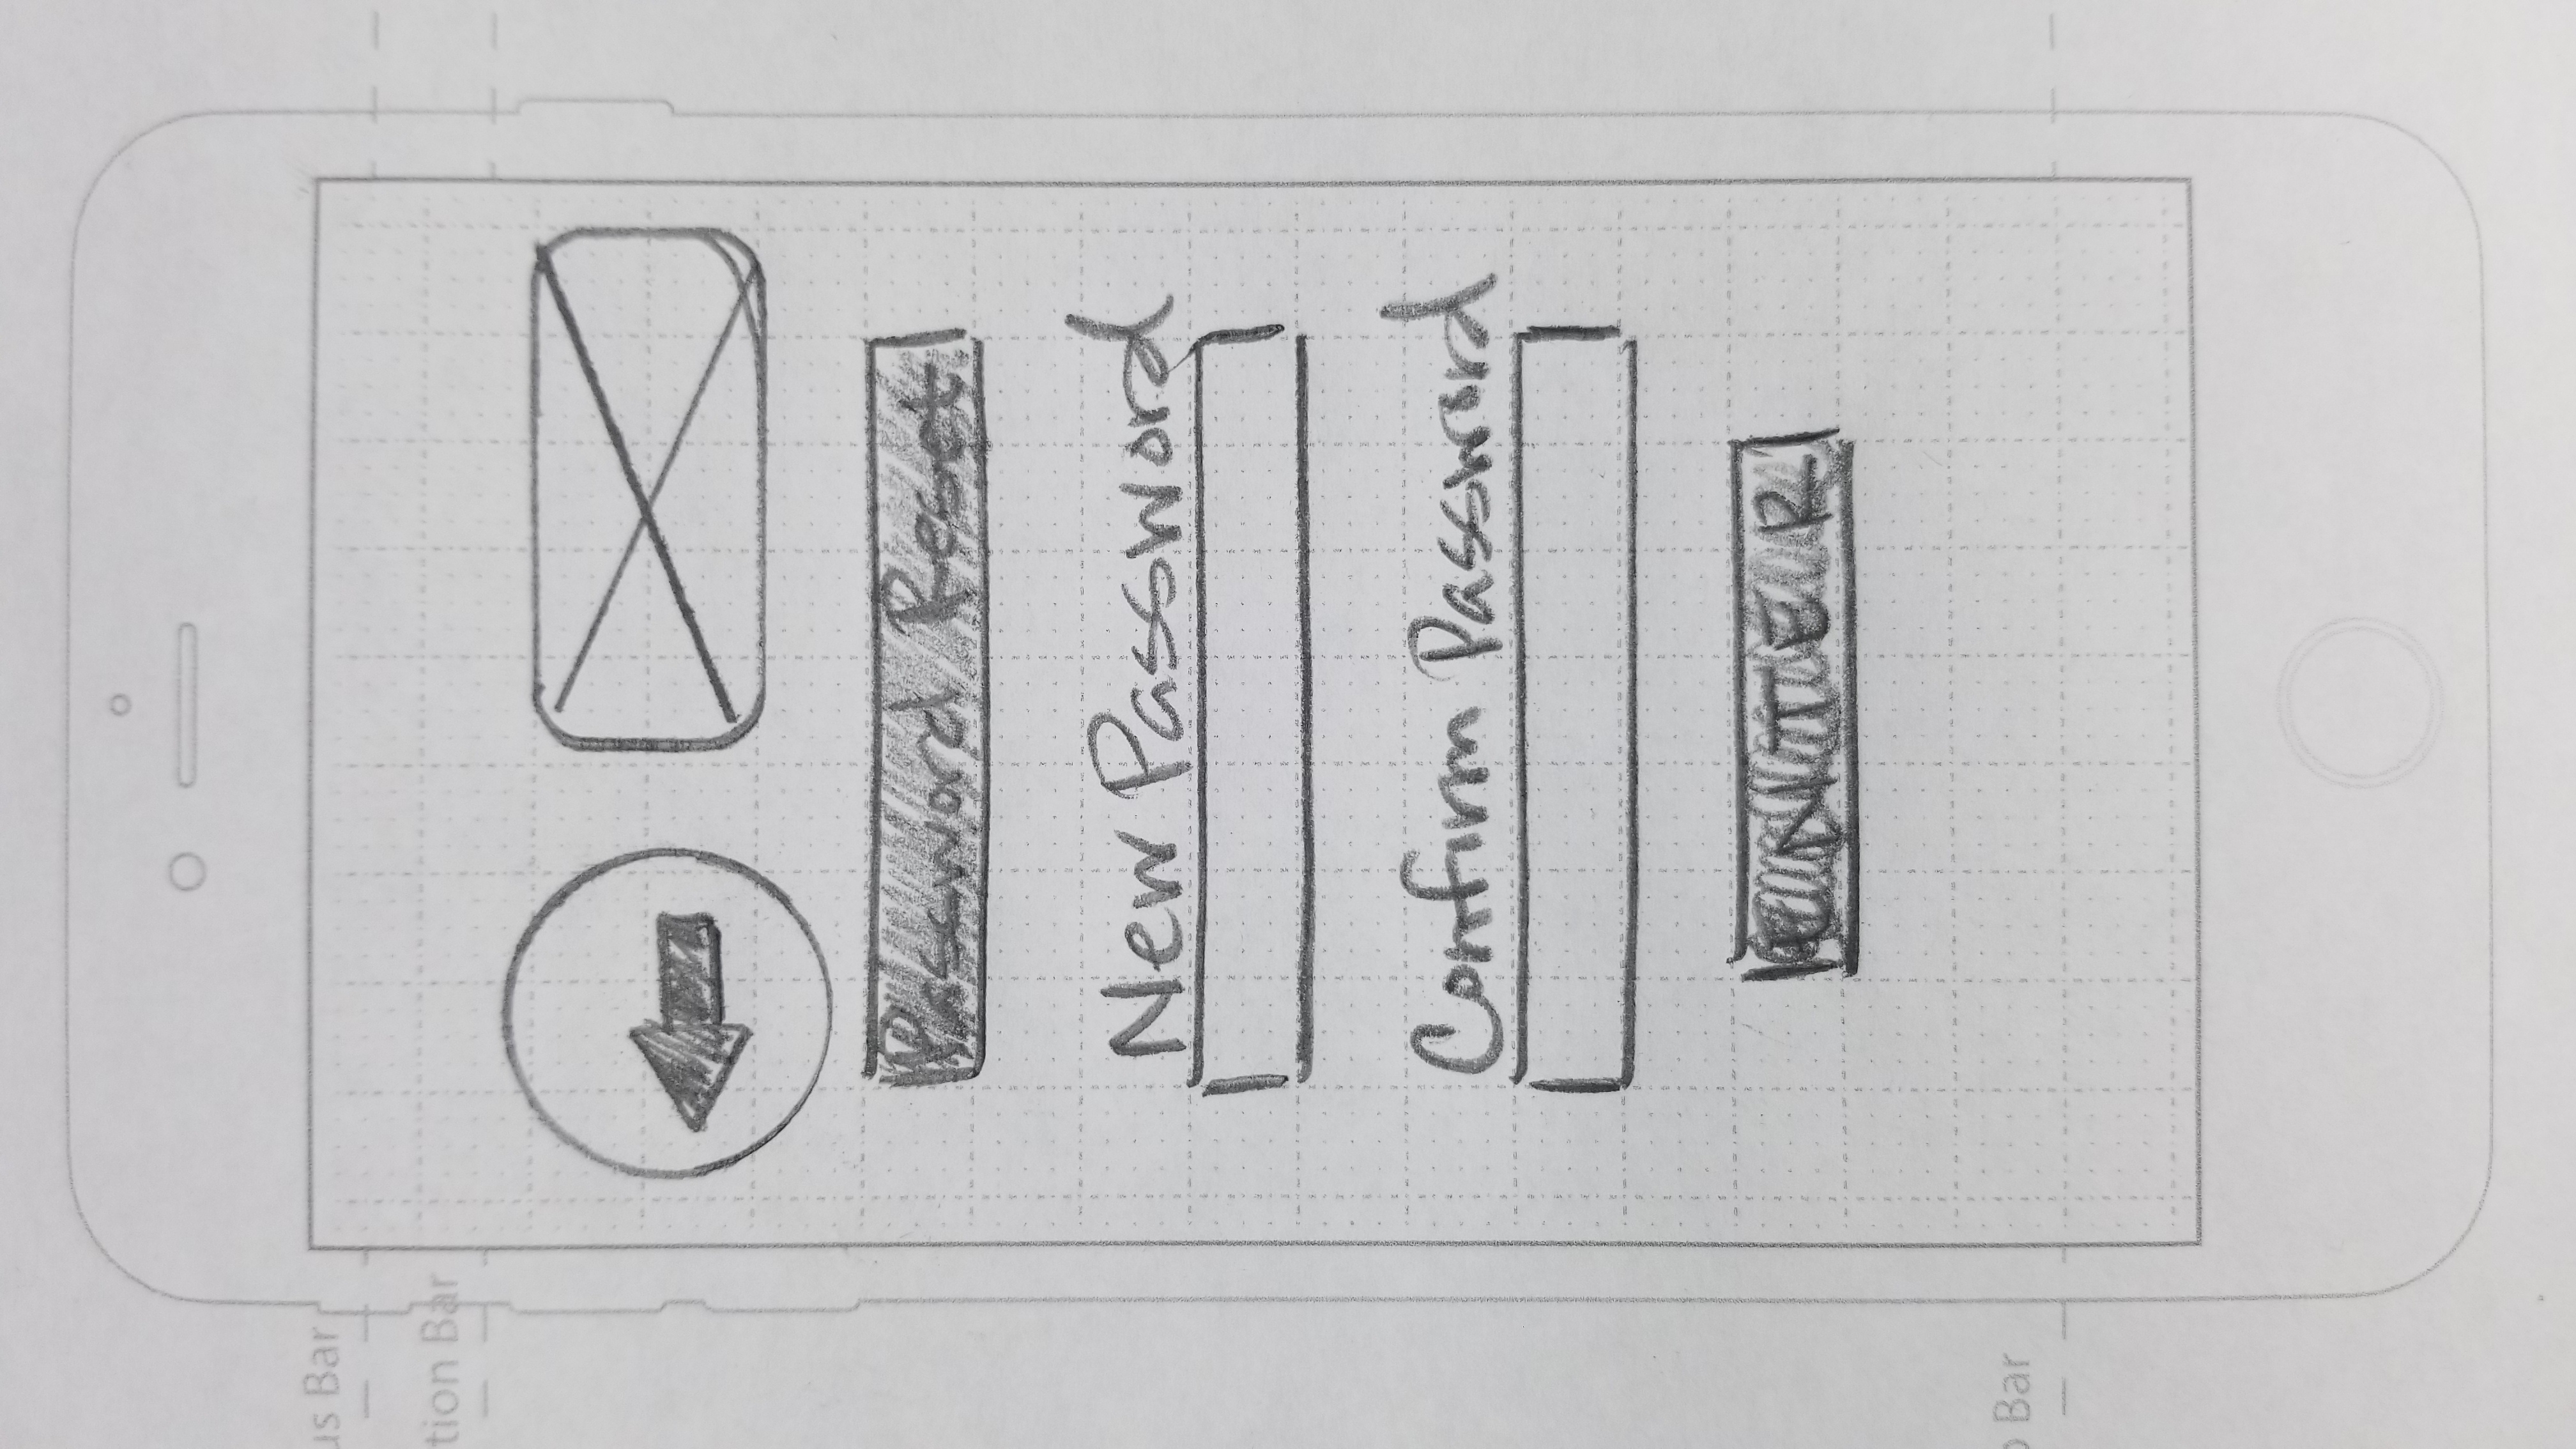 us Bar
tion Bar
Password Reset
New Password
Confirm Password
ENTER
b Bar